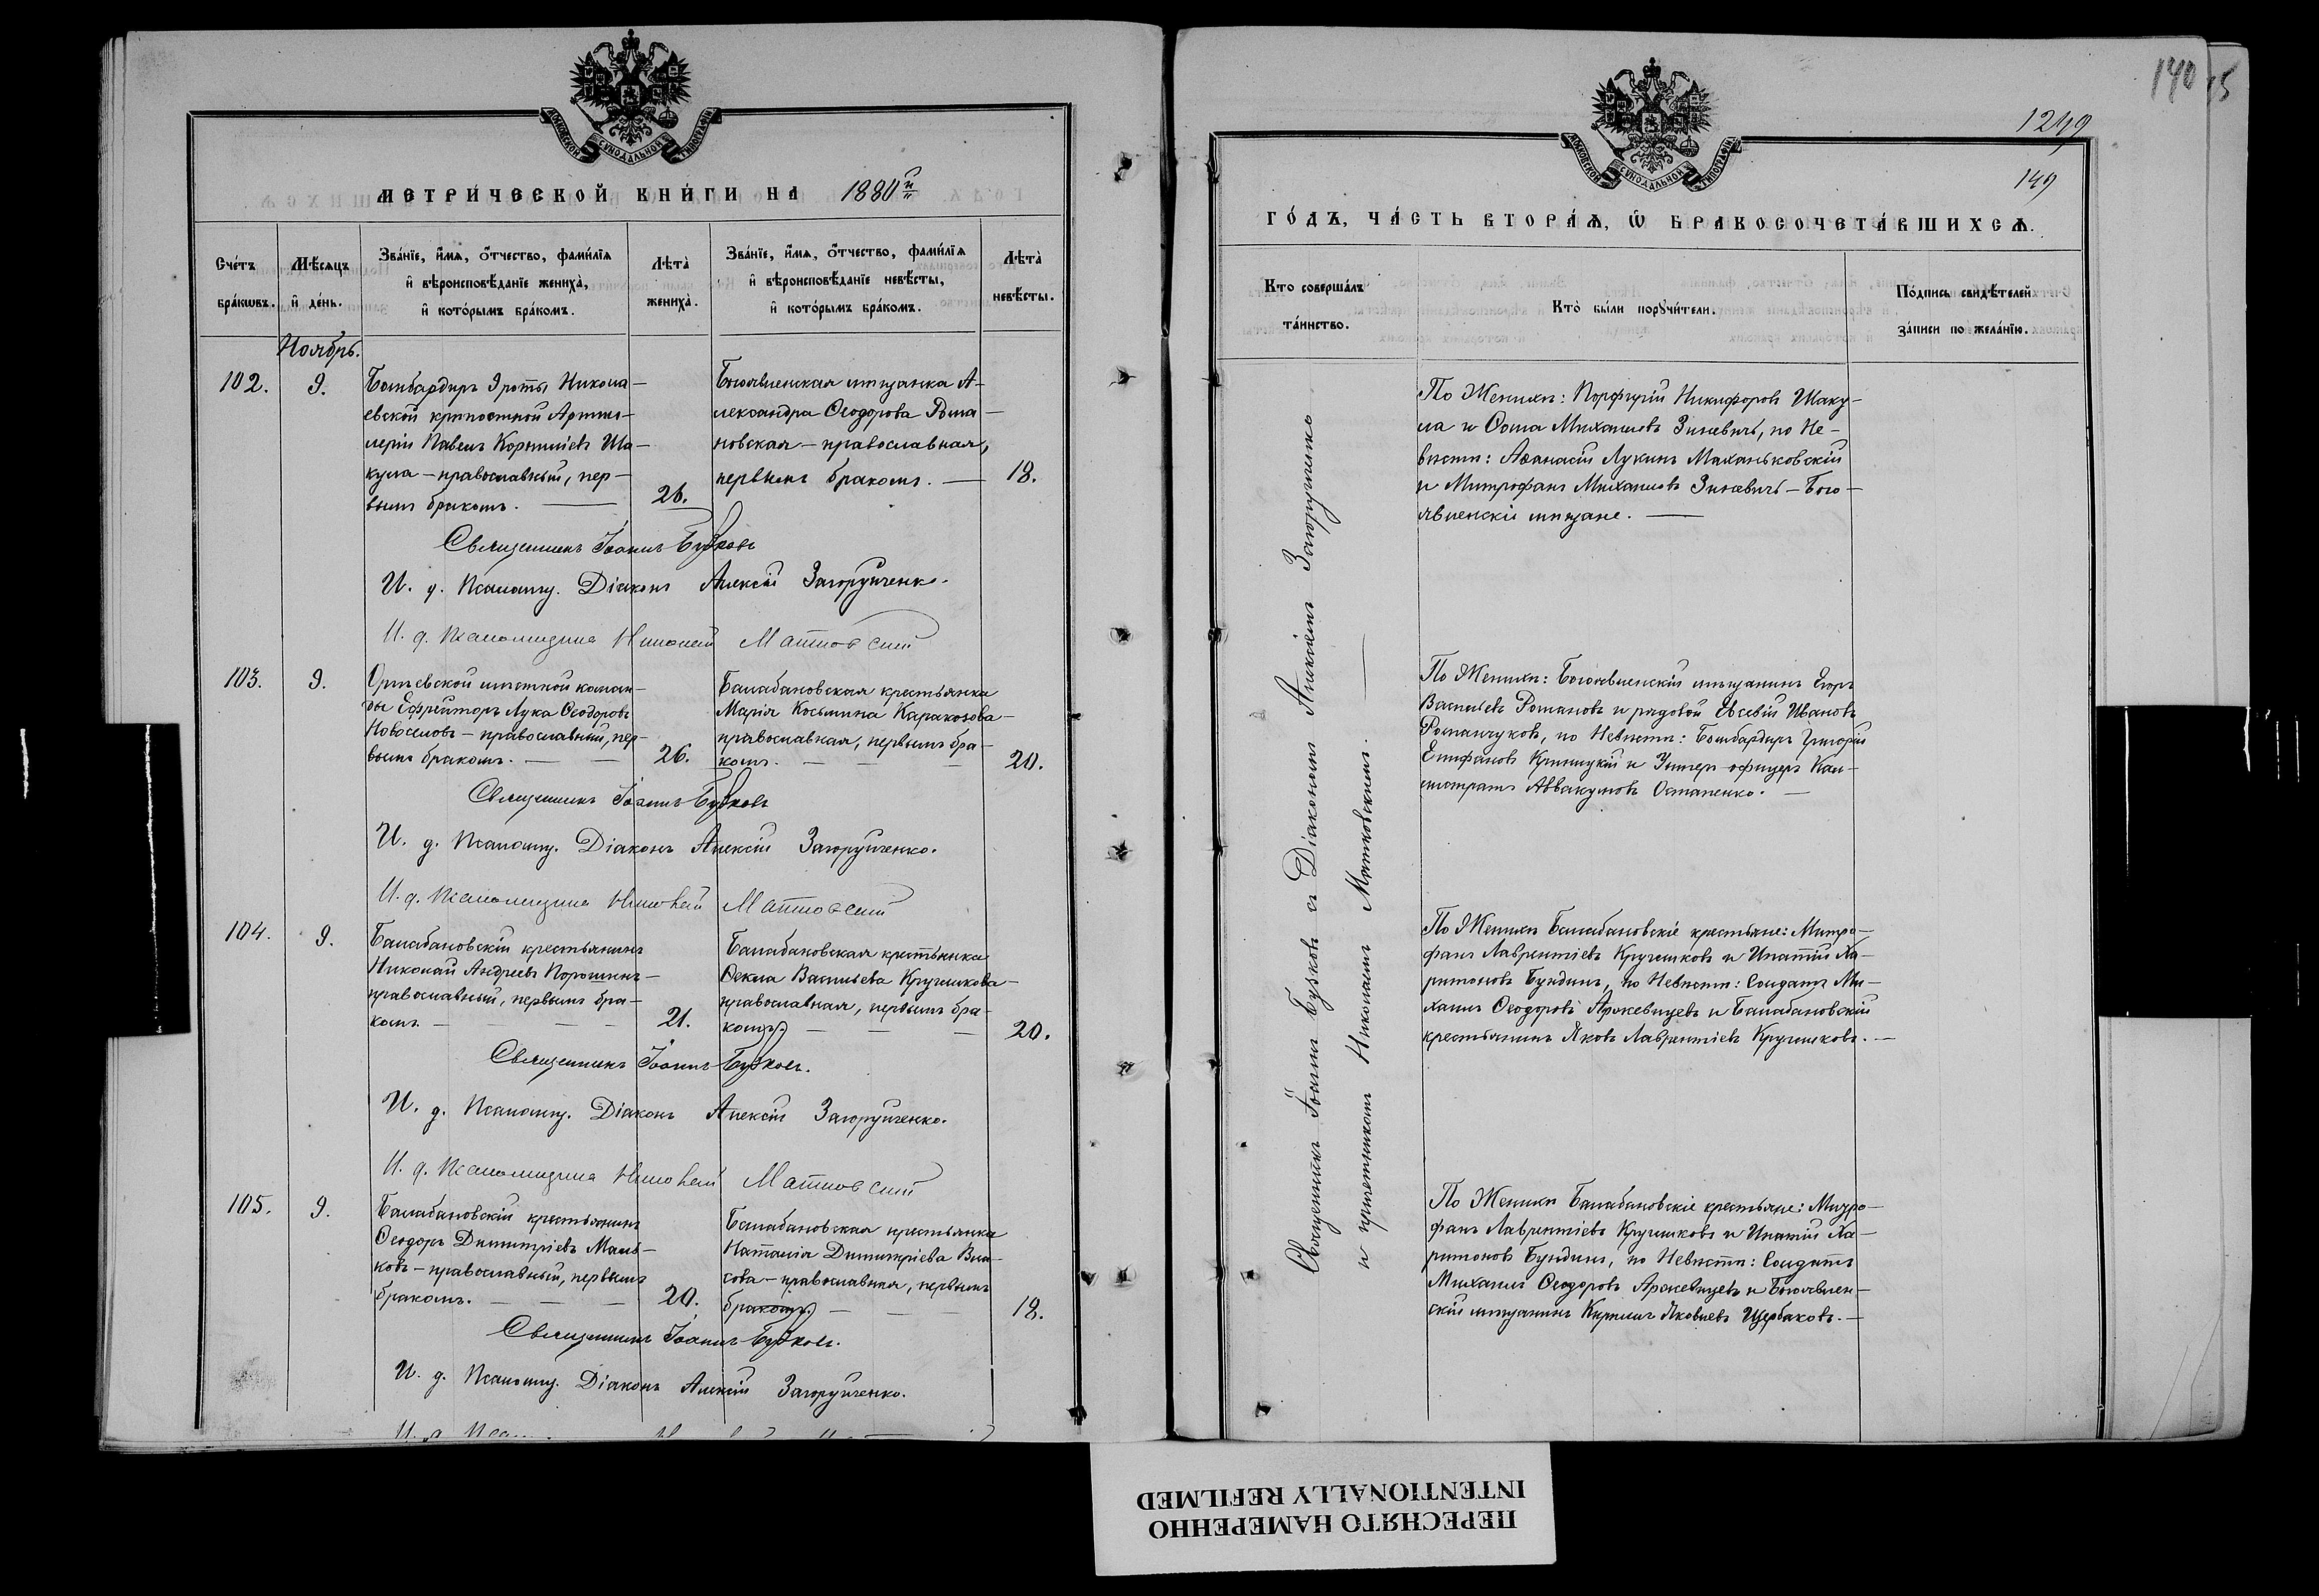 МОСКОВСКОЙ СѴНОДАЛЬНОЙ ТИПОГРАФІИ
МЕТРИ́ЧЕСКОЙ КНИ́ГИ НА 1880й
Сче́тъ бра́кωвъ.
Мѣ́сяцъ и҆ де́нь.
Зва́нїе, и҆́мѧ, ѻ҆́тчество, фами́лїѧ
и҆ вѣроисповѣ́данїе жениха̀,
и҆ кото́рымъ бра́комъ.
Лѣта̀ жениха̀.
Зва́нїе, и҆́мѧ, ѻ҆́тчество, фами́лїѧ
и҆ вѣроисповѣ́данїе невѣ́сты,
и҆ кото́рымъ бра́комъ.
Лѣта̀ невѣ́сты.
Ноябрь.
102. 9.
Бомбардиръ 9 роты Никола-
евской крѣпостной Артил-
леріи Павелъ Корниліевъ Ша-
кула – православный, пер-
вымъ бракомъ. — 26.
Богоявленская мѣщанка А-
лександра Ѳеодорова
новская – православная,
первымъ бракомъ. — 18.
Священникъ Іоаннъ Бузковъ
И. д. Псаломщ. Діаконъ Алексій Загоруйченко.
И. д. Псаломщика Николай Матковскій
103. 9.
мѣстной коман-
ды Ефрейторъ Лука Ѳеодоровъ
Новоселовъ – православный, пер-
вымъ бракомъ. — — 26.
Балабановская крестьянка
Марія Косьмина Каракозова –
православная, первымъ бра-
комъ. — — 20.
Священникъ Іоаннъ Бузковъ
И. д. Псаломщ. Діаконъ Алексій Загоруйченко.
И. д. Псаломщика Николай Матковскій
104. 9.
Балабановскій крестьянинъ
Николай Андреевъ Порошинъ –
православный, первымъ бра-
комъ. — — — 21.
Балабановская крестьянка
Ѳекла Васильева Кручинкова –
православная, первымъ бра-
комъ. — — 20.
Священникъ Іоаннъ Бузковъ.
И. д. Псаломщ. Діаконъ Алексій Загоруйченко.
И. д. Псаломщика Николай Матковскій
105. 9.
Балабановскій крестьянинъ
Ѳеодоръ Димитріевъ Маль-
ковъ – православный, первымъ
бракомъ. — — — 20.
Балабановская крестьянка
Наталія Димитріева Вла-
сова – православная, первымъ
бракомъ. — — 18.
Священникъ Іоаннъ Бузковъ.
И. д. Псаломщ. Діаконъ Алексій Загоруйченко.
140
1249
149
МОСКОВСКОЙ СѴНОДАЛЬНОЙ ТИПОГРАФІИ
ГО́ДЪ, ЧА́СТЬ ВТОРА́Ѧ, Ѽ БРАКОСОЧЕТА́ВШИХСѦ.
Кто̀ соверша́лъ та́инство.
Кто̀ бы́ли порꙋчи́тели.
По́дпись свидѣ́телей за́писи по жела́нїю.
Священникъ Іоаннъ Бузковъ съ Діакономъ Алексіемъ Загоруйченко
и причетникомъ Николаемъ Матковскимъ. —
По Женихѣ: Порфирій Никифоровъ Шаку-
ла и Ѳома Михаиловъ Зинкевичъ, по Не-
вѣстѣ: Аѳанасій Лукинъ Маханьковскій
и Митрофанъ Михаиловъ Зинкевичъ – Бого-
явленскіе мѣщане. —
По Женихѣ: Богоявленскій мѣщанинъ Егоръ
Васильевъ Романовъ и рядовой Евсевій Ивановъ
Романчуковъ, по Невѣстѣ: Бомбардиръ Григорій
Епифановъ Криницкій и Унтеръ-офицеръ Кал-
листратъ Аввакумовъ Остапенко. —
По Женихѣ Балабановскіе крестьяне: Митро-
фанъ Лаврентіевъ Кручинковъ и Ипатій Ха-
ритоновъ Бундинъ, по Невѣстѣ: Солдатъ Ми-
хаилъ Ѳеодоровъ Аржевицевъ и Балабановскій
крестьянинъ Яковъ Лаврентіевъ Кручинковъ. —
По Женихѣ Балабановскіе крестьяне: Митро-
фанъ Лаврентіевъ Кручинковъ и Ипатій Ха-
ритоновъ Бундинъ, по Невѣстѣ: Солдатъ
Михаилъ Ѳеодоровъ Аржевицевъ и Богоявлен-
скій мѣщанинъ Кириллъ Яковлевъ Щербаковъ. —
ПЕРЕСНЯТО НАМЕРЕННО
INTENTIONALLY REFILMED